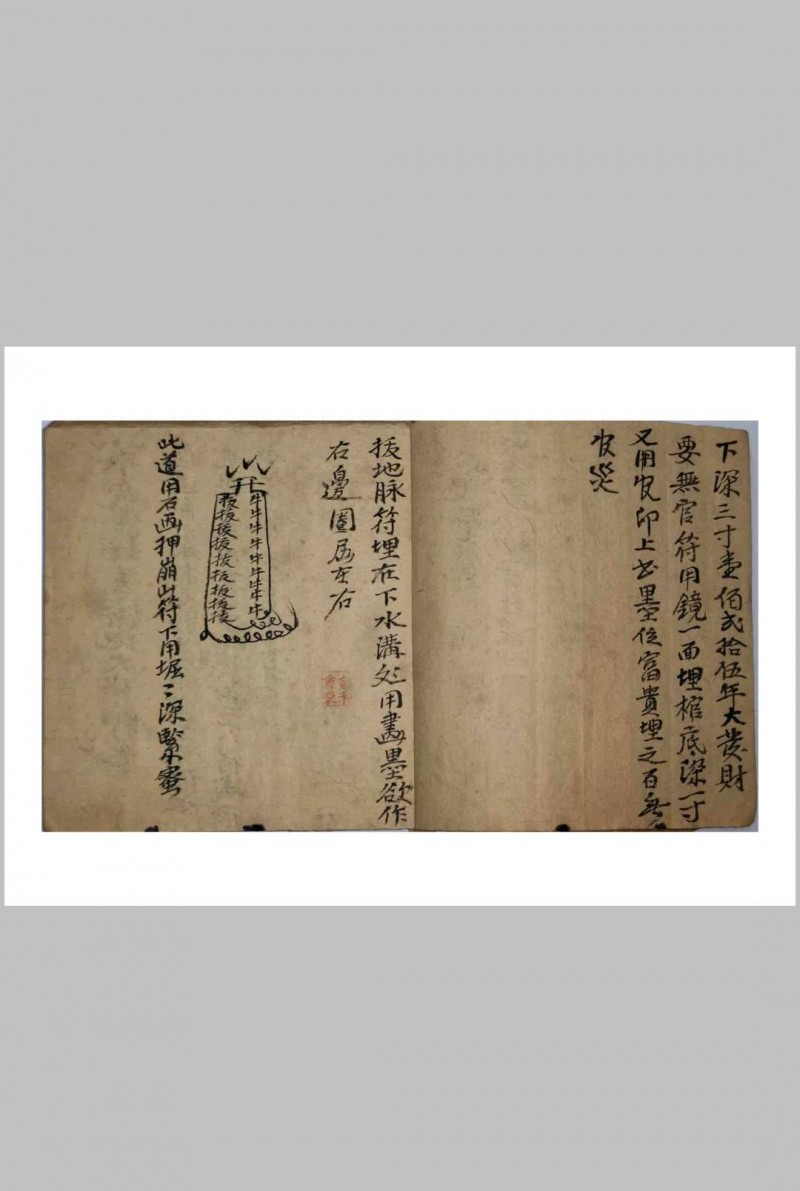 下深三寸壹佰弍拾伍年大發財
要無官符用鏡一面埋棺底深一寸
又用印上書墨位富貴埋之百無
災
拔地脉符埋在下水溝處用畫墨欲作
右邊圖居左右
井
牛牛牛牛牛牛牛牛
拔拔拔拔拔拔拔拔拔
此道用石画押崩山符下用堀二深緊密